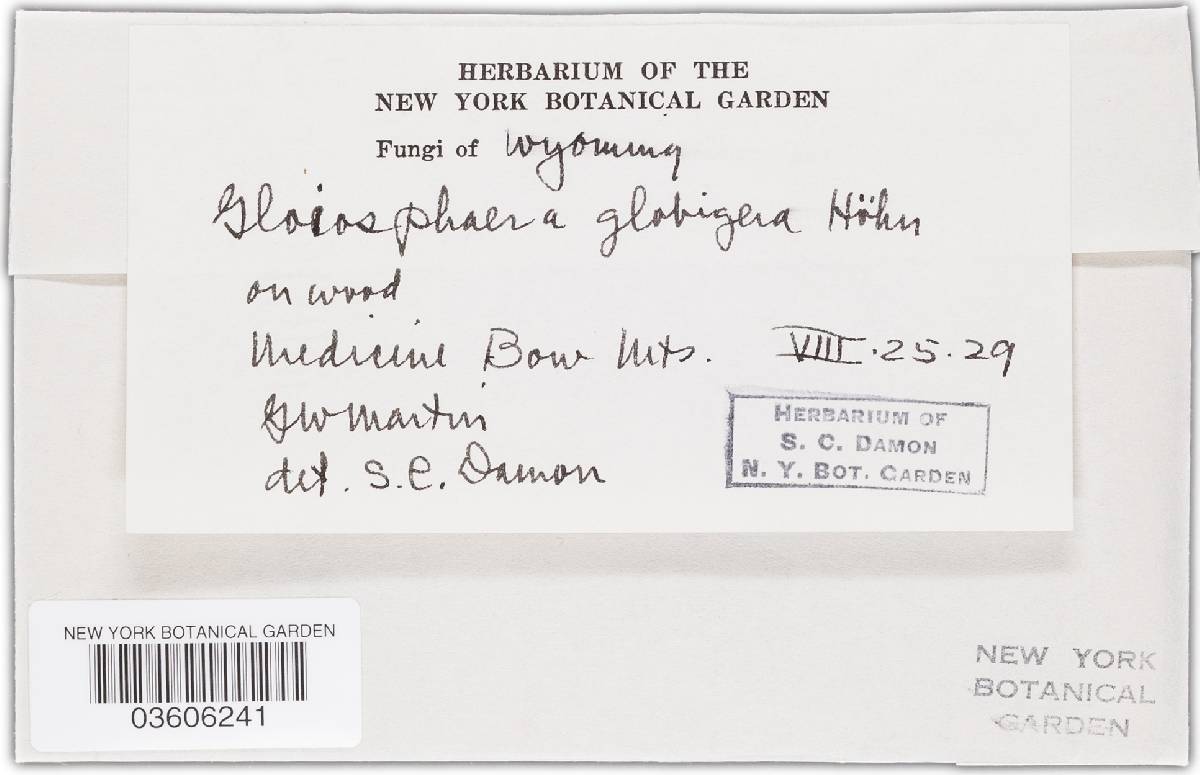 HERBARIUM OF THE
NEW YORK BOTANICAL GARDEN
Fungi of Wyoming
Gloiosphaera globigera Höhn
on wood
Medicine Bow Mts. VIII.25.29
GWMartin
det. S.C. Damon
HERBARIUM OF
S. C. DAMON
N. Y. BOT. GARDEN
NEW YORK BOTANICAL GARDEN
03606241
NEW YORK
BOTANICAL
GARDEN